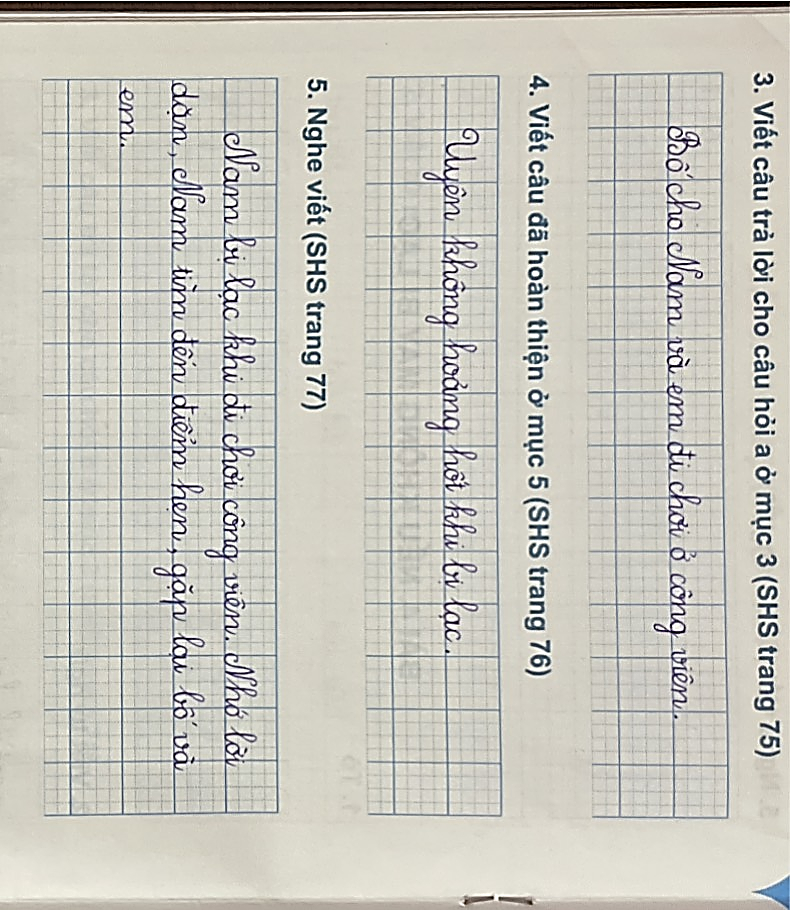 3. Viết câu trả lời cho câu hỏi a ở mục 3 (SHS trang 75)
Bố cho Nam và em đi chơi ở công viên.
4. Viết câu đã hoàn thiện ở mục 5 (SHS trang 76)
Uyên không hoảng hốt khi bị lạc.
5. Nghe viết (SHS trang 77)
Nam bị lạc khi đi chơi công viên. Nhớ lời
dặn, Nam tìm đến điểm hẹn, gặp lại bố và
em.